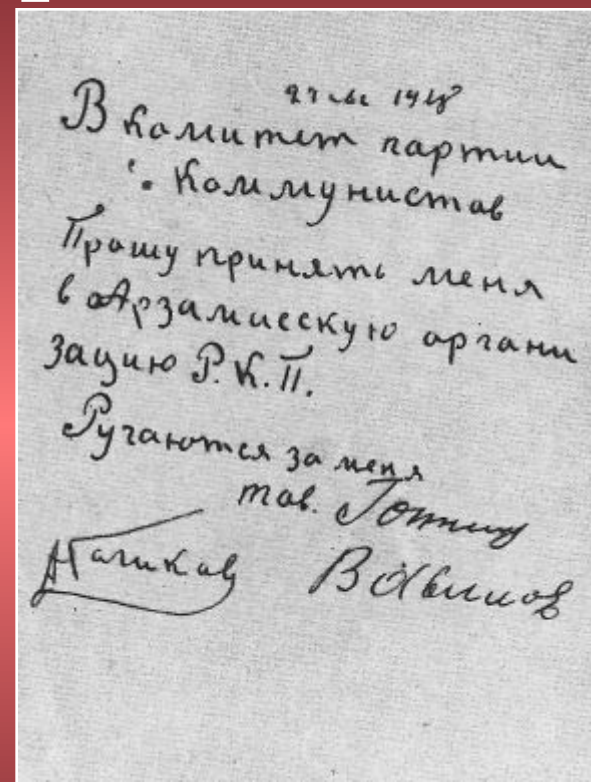 1918
В комитет партии
Коммунистов
Прошу принять меня
в Арзамасскую органи
зацию Р.К.П.
Ручаются за меня
тов. Гоппиус
АГоликов Вавилов